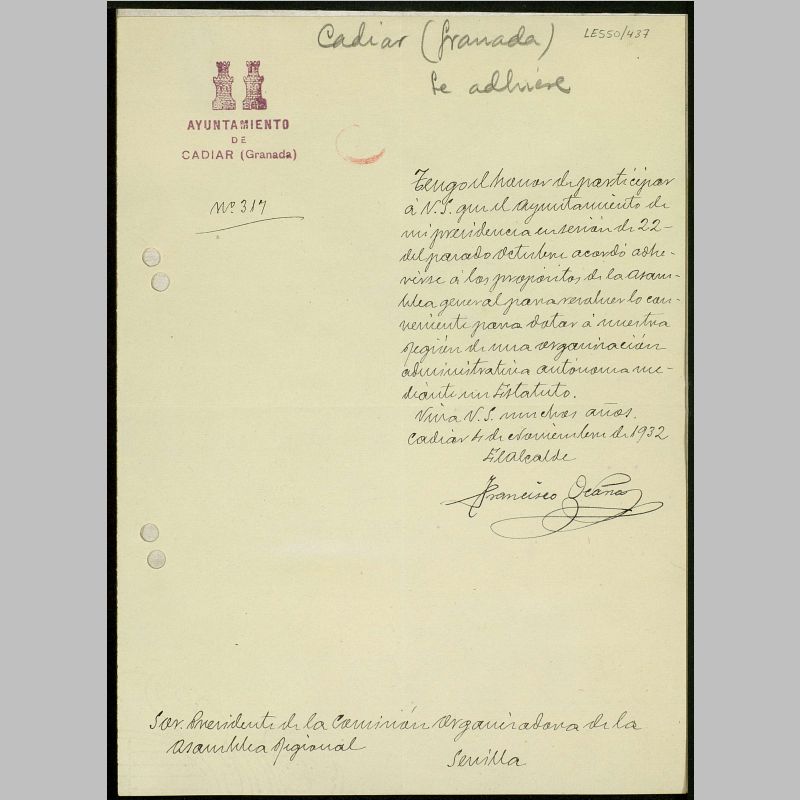 Cadiar (Granada)
Se adhiere
LE550/437
AYUNTAMIENTO
DE
CADIAR (Granada)
Nº 317
Tengo el honor de participar
á V.S. que el Ayuntamiento de
mi presidencia en sesión de 22
del pasado Octubre acordó adhe-
rirse á los propósitos de la Asam-
blea general para resolver lo con-
veniente para dotar á nuestra
Región de una organización
administrativa autónoma me-
diante un Estatuto.
Viva V.S. muchos años.
Cadiar 4 de Noviembre de 1932
El Alcalde
Francisco Ocaña
Sor. Presidente de la Comisión Organizadora de la
Asamblea Regional
Sevilla